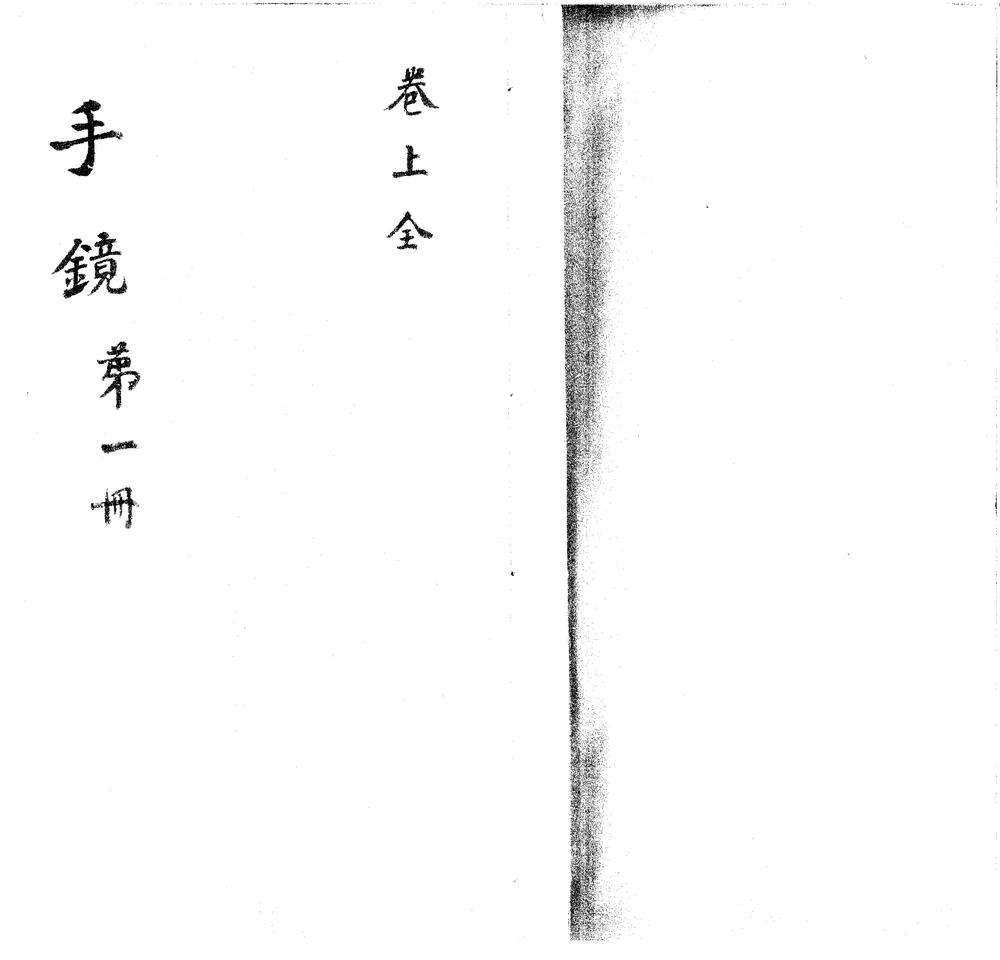 卷上全
手鏡 第一冊